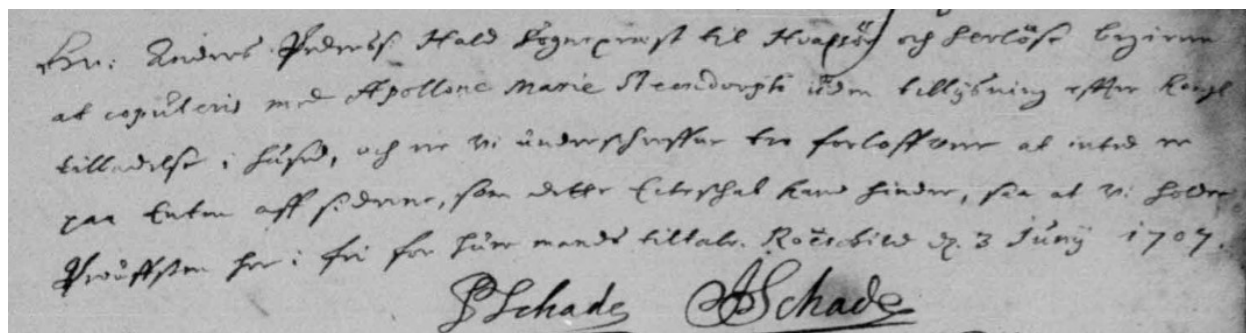 Hr: Anders Pederss: Hald Sognepræst til Hvalsöe och Serlöse begierer
at copuleris med Apollone Marie Steendorph uden tillÿsning effter Kongl
tilladelse i huset, och er vi underschreffne troe forloffvere at inted er
paa Enten aff siderne, som dette Ecteschab kand hindre, saa at vi holder
Prouffsten her i fri for huer mands tiltale. Roëschild d. 3 Junij 1707.
P Schade A Schade